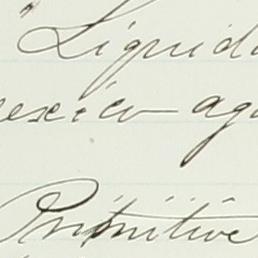 "Liquid
exico ag
Primitive